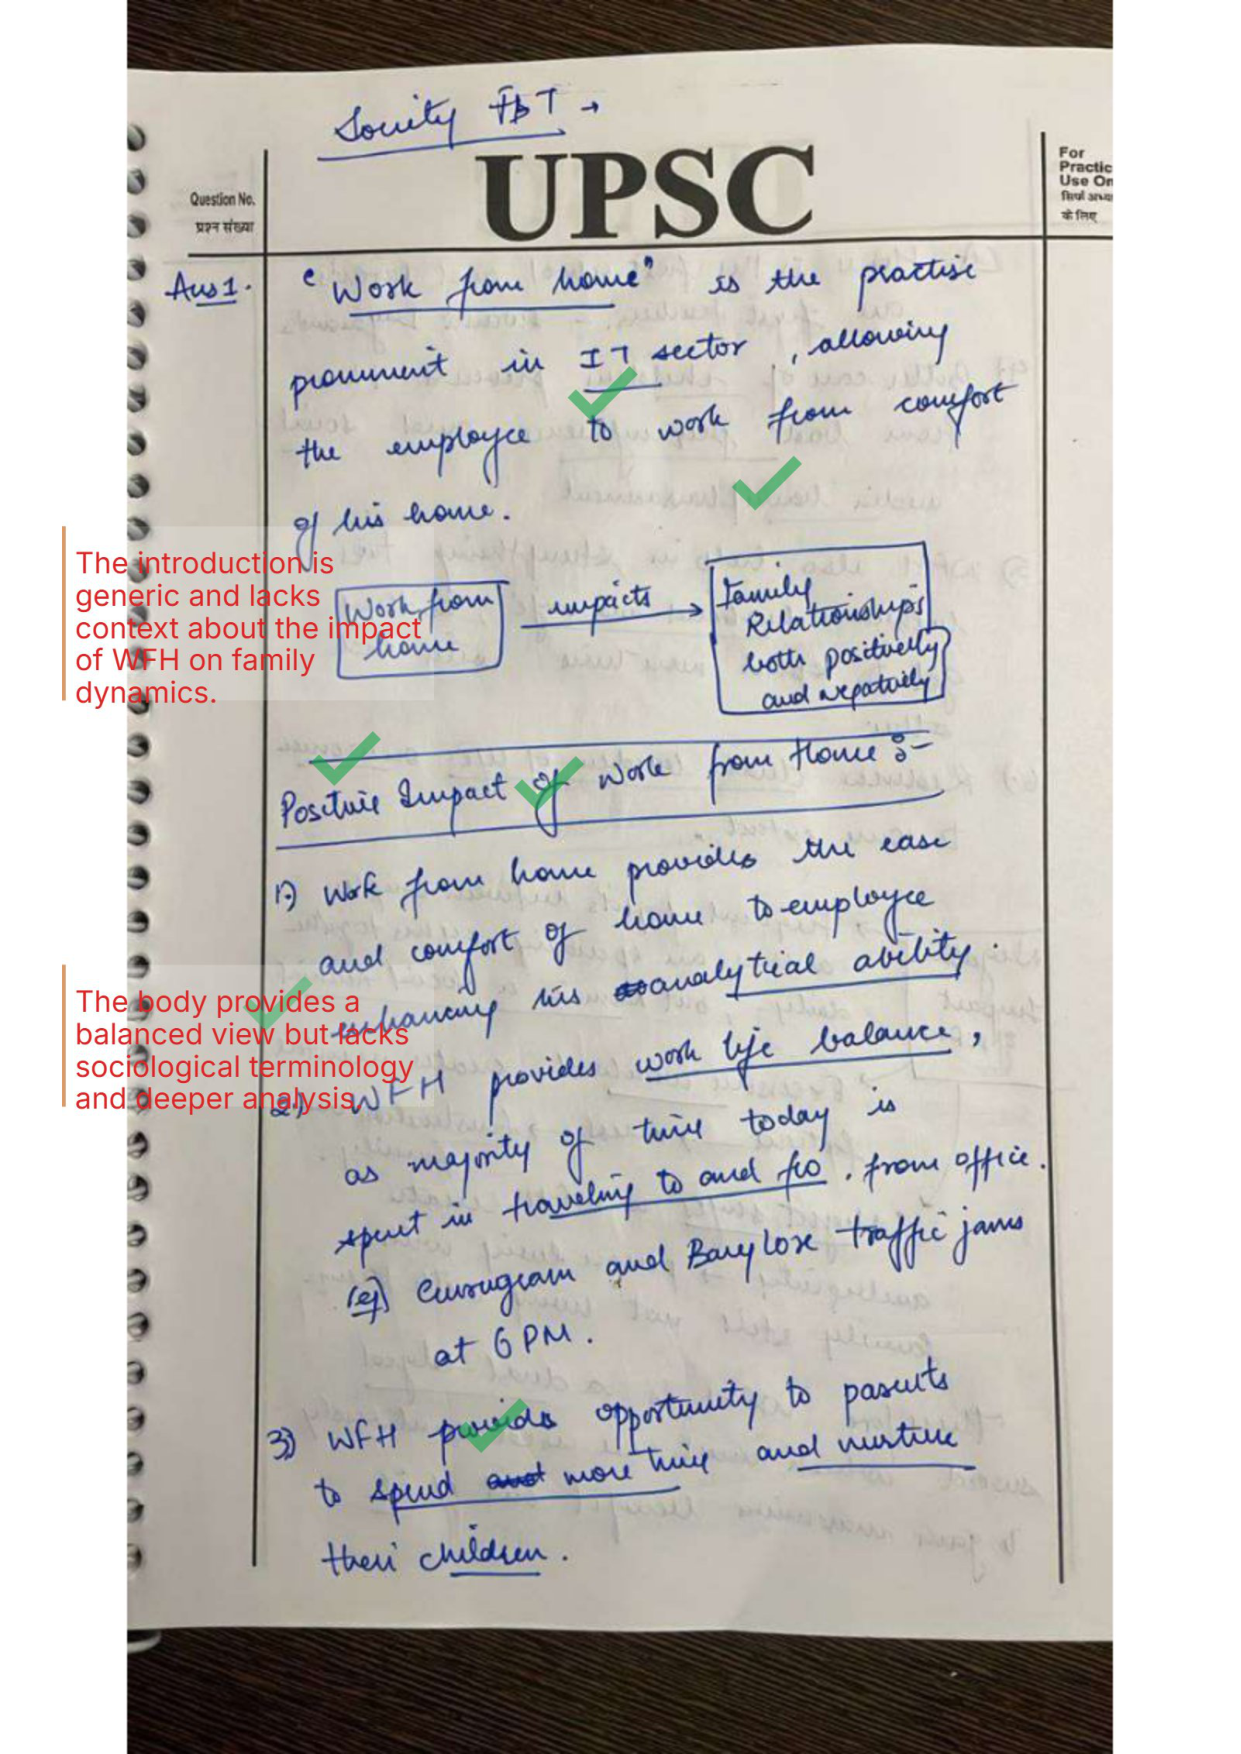 Society FBT →
UPSC
Question No.
प्रश्न संख्या
For
Practic
Use On
सिर्फ अभ्या
के लिए
Ans 1. "Work from home" is the practise
prominent in IT sector, allowing
the employee to work from comfort
of his home.
The introduction is
generic and lacks
context about the impact
of WFH on family
dynamics.
Work from
home
impacts
Family
Relationships
both positively
and negatively
Positive Impact of Work from Home :-
1) Work from home provides the ease
and comfort of home to employee
enhancing his analytical ability.
The body provides a
balanced view but lacks
sociological terminology
and deeper analysis.
2) WFH provides work life balance,
as majority of time today is
spent in traveling to and fro. from office.
(eg) Gurugram and Banglore traffic jams
at 6 PM.
3) WFH provides opportunity to parents
to spend more time and nurture
their children.